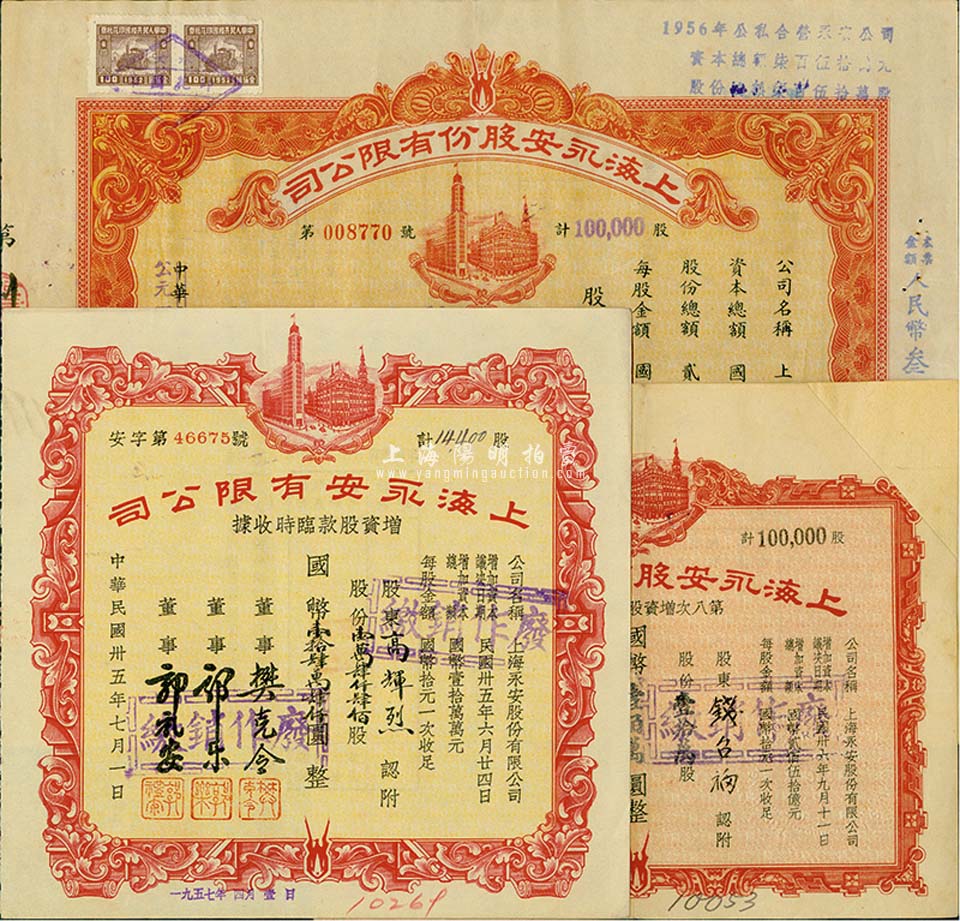 中華人民共和國印花稅票
中華人民共和國印花稅票
100
1952
100
1952
1956年公私合營永安公司
資本總額柒百伍拾萬元
上海永安股份有限公司
第 008770 號
計 100,000 股
公司名稱 上
資本總額 國
股份總額 貳
每股金額 國
股
中華
公元
第
本票
金額
人民幣叁
安字第 46675 號
計 14400 股
上海永安有限公司
增資股款臨時收據
公司名稱 上海永安股份有限公司
增加資本議決日期 民國卅五年六月廿四日
增加資本總額 國幣壹拾萬萬元
每股金額 國幣拾元一次收足
股東高輝烈 認附
股份壹萬肆仟肆佰股
國幣壹拾肆萬肆仟圓整
董事
董事
董事 郭
中華民國卅五年七月一日
繳銷作廢
繳銷作廢
一九五七年 四月 壹 日
10269
上海陽明拍賣
www.yangmingauction.com
計 100,000 股
上海永安股
第八次增資股
公司名稱 上海永安股份有限公司
增加資本議決日期 民國卅六年九月十一日
增加資本總額 國幣貳佰伍拾億元
每股金額 國幣拾元一次收足
股東 錢 認附
股份壹拾萬股
國幣壹佰萬圓整
10053